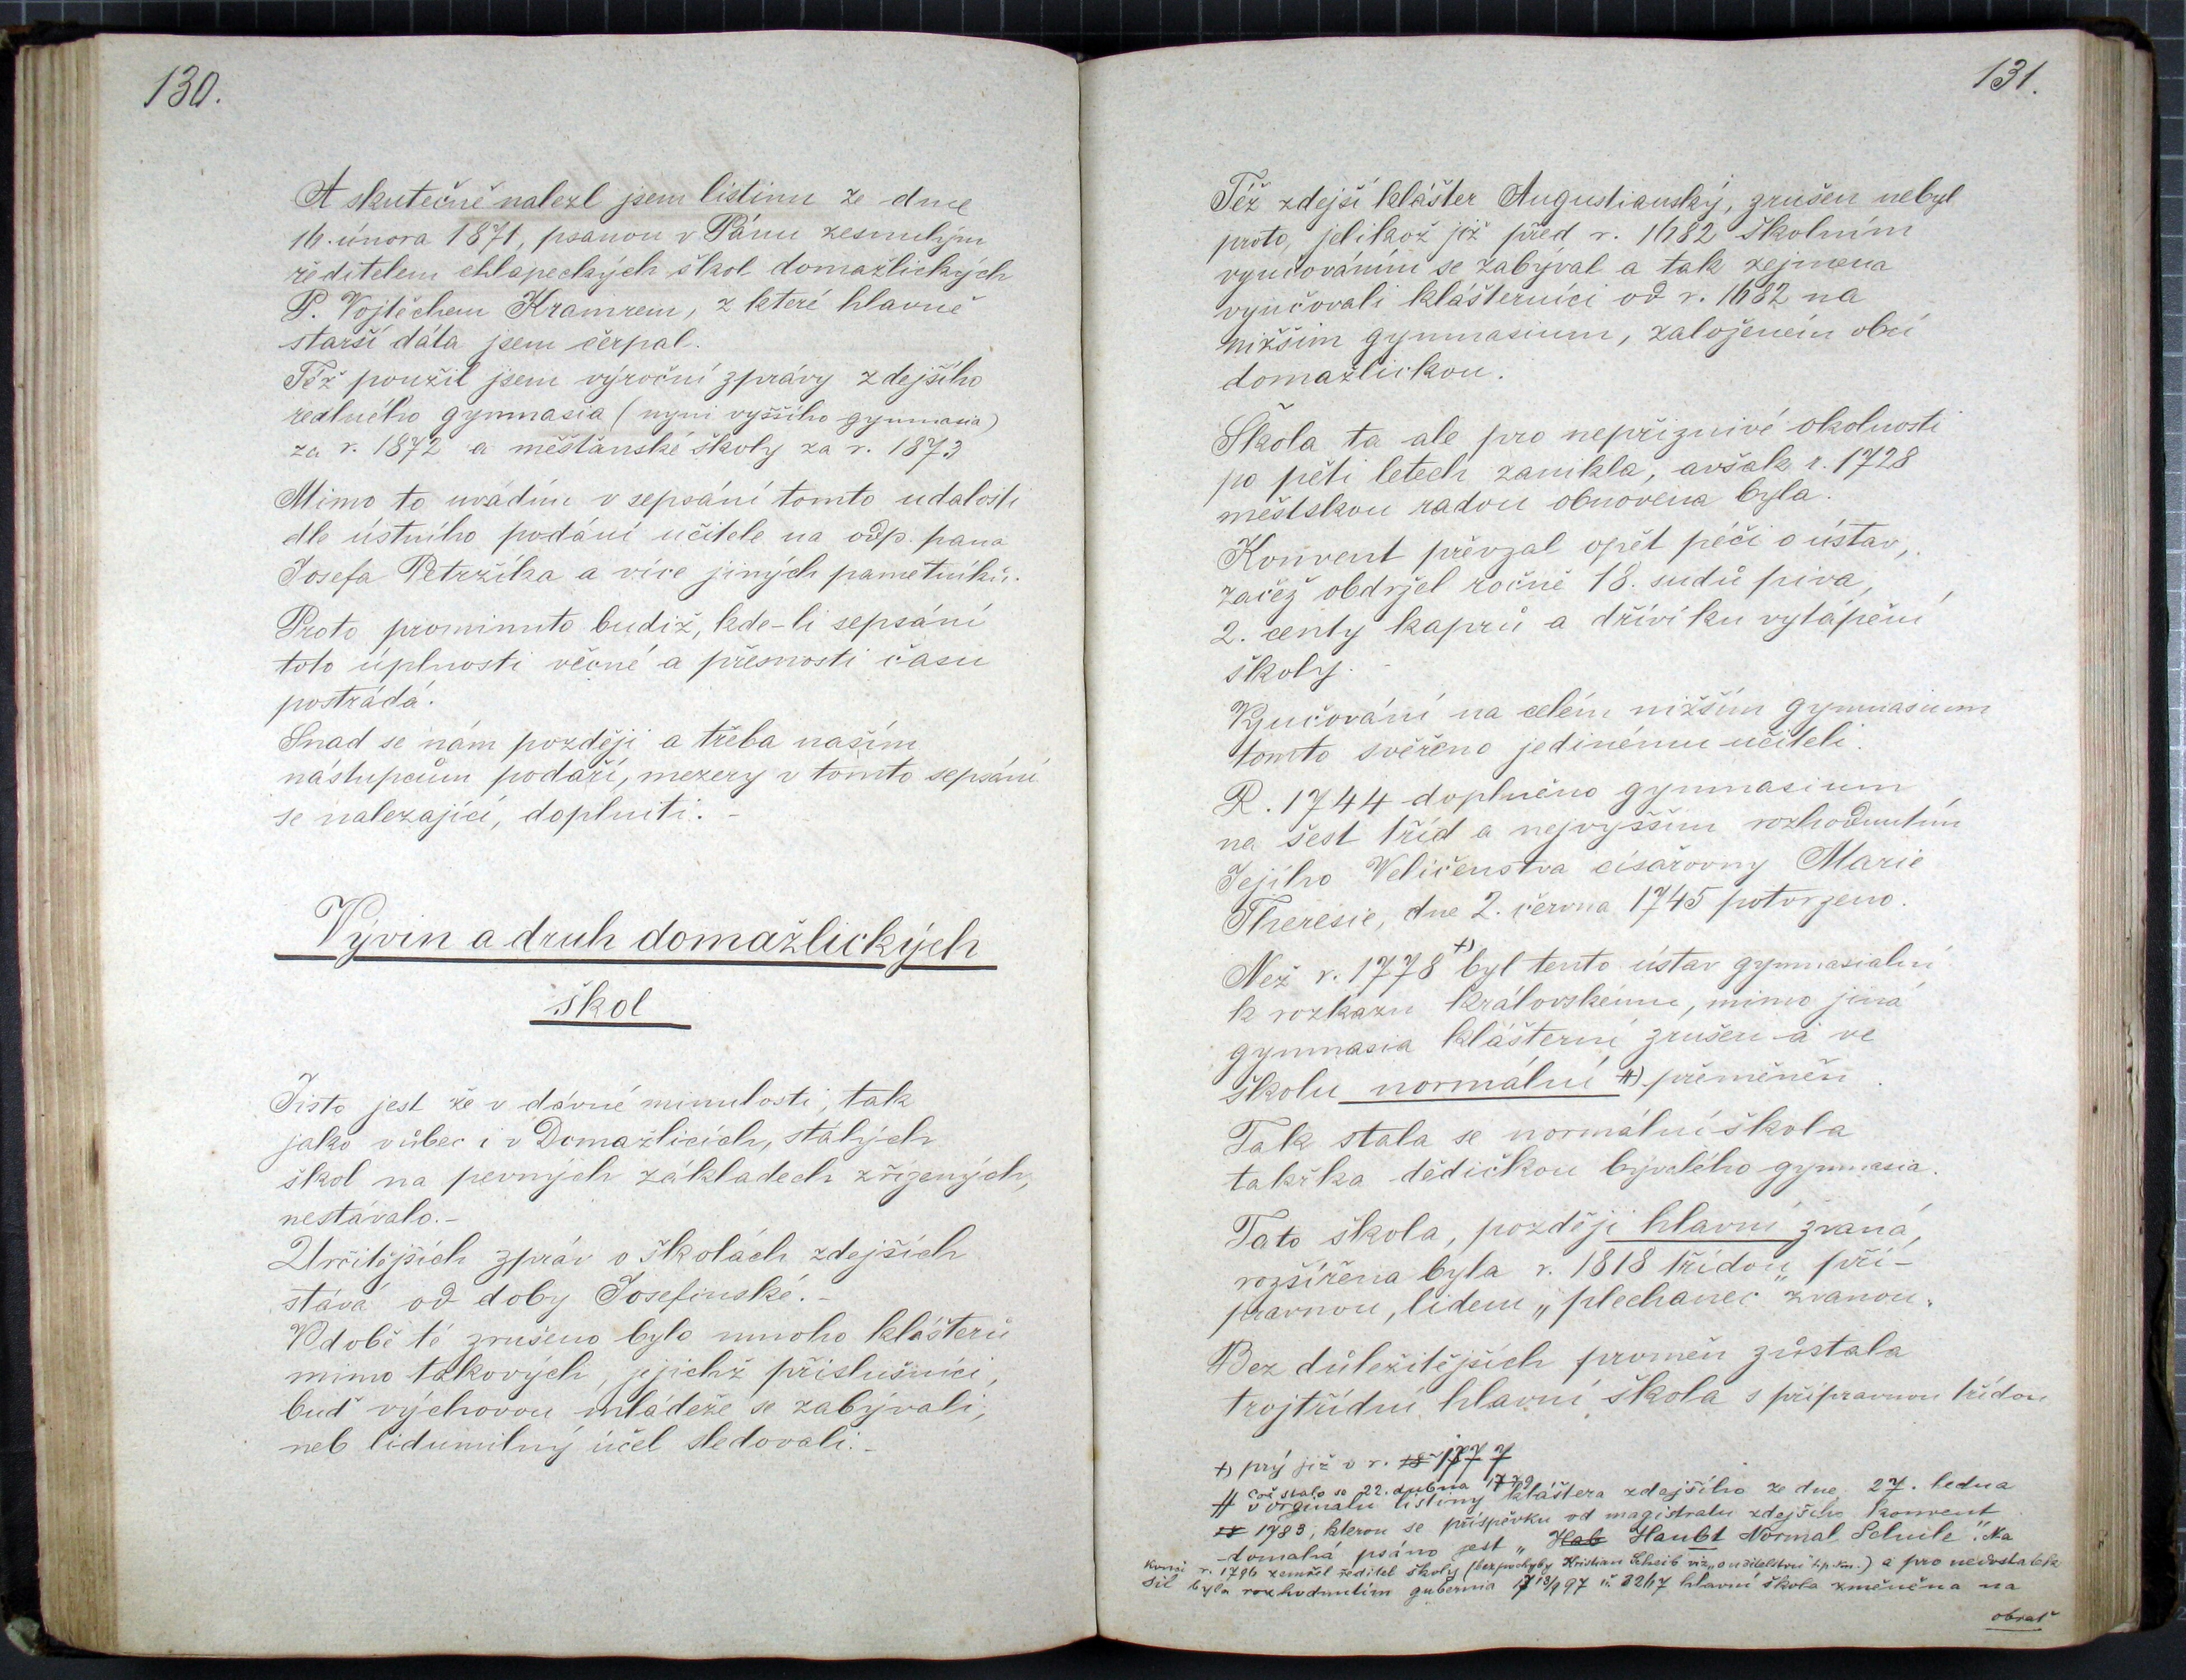 130.
A skutečně nalezl jsem listinu ze dne
16. února 1871, psanou v Pánu zesnulým
ředitelem chlapeckých škol domažlických
P. Vojtěchem Kramrem, z které hlavně
starší dáta jsem čerpal.
Též použil jsem výroční zprávy zdejšího
realného gymnasia (nyni vyššího gymnasia)
za r. 1872 a měšťanské školy za r. 1873
Mimo to uvádím v sepsání tomto udalosti
dle ústního podání učitele na odp. pana
Josefa Petržíka a více jiných pametníků.
Proto prominuto budiž, kde-li sepsání
toto úplnosti věcné a přesnosti času
postrádá.
Snad se nám později a třeba našim
nástupcům podaří, mezery v tomto sepsání
se nalezající, doplniti. -
Vývin a druh domažlických
škol
Jisto jest že v dávné minulosti, tak
jako vůbec i v Domažlicích, stálých
škol na pevných základech zřízených,
nestávalo.-
Určitějších zpráv o školách zdejších
stává od doby Josefinské.-
V době té zrušeno bylo mnoho klášterů
mimo takových, jejichž přislušníci,
buď výchovou mládeže se zabývali,
neb lidumilný účel sledovali.-
131.
Též zdejší klášter Augustianský, zrušen nebyl
proto, jelikož již před r. 1682 školním
vyučováním se zabýval a tak zejmena
vyučovali klášterníci od r. 1682 na
nižším gymnasium, založeném obcí
domažlickou.
Škola ta ale pro nepříznivé okolnosti
po pěti letech zanikla, avšak r. 1728
městskou radou obnovena byla.
Konvent převzal opět péči o ústav,
začež obdržel ročně 18. sudů piva,
2. centy kaprů a dříví ku vytápění
školy.-
Vyučování na celém nižším gymnasium
tomto svěřeno jedinému učiteli.
R. 1744 doplněno gymnasium
na šest tříd a nejvyšším rozhodnutím
Jejího Veličenstva císařovny Marie
Theresie, dne 2. června 1745 potvrzeno.
Než r. 1778 +) byl tento ústav gymnasialní
k rozkazu královskému, mimo jiná
gymnasia klášterní zrušen a ve
školu normální ++) přeměněn.
Tak stala se normální škola
takřka dědičkou bývalého gymnasia.
Tato škola, později hlavní zvaná,
rozšířena byla r. 1818 třídou pří-
pravnou, lidem „plechanec" zvanou.
Bez důležitějších proměn zůstala
trojtřídní hlavní škola s přípravnou třídou
+) prý již v r. 18 1777
což stalo se 22. dubna 1779
++ v orginalu listiny kláštera zdejšího ze dne 27. ledna
18 1783, kterou se příspěvku od magistratu zdejšího konvent
domahá psáno jest „Hab Haubt Normal Schule". Na
konci r. 1796 zemřel ředitel školy (bezpochyby Kristian Scheib viz „o učitelstvu") a pro nedostatek
sil byla rozhodnutím gubernia 13/1 97 č. 3267 hlavní škola změněna na
obrať